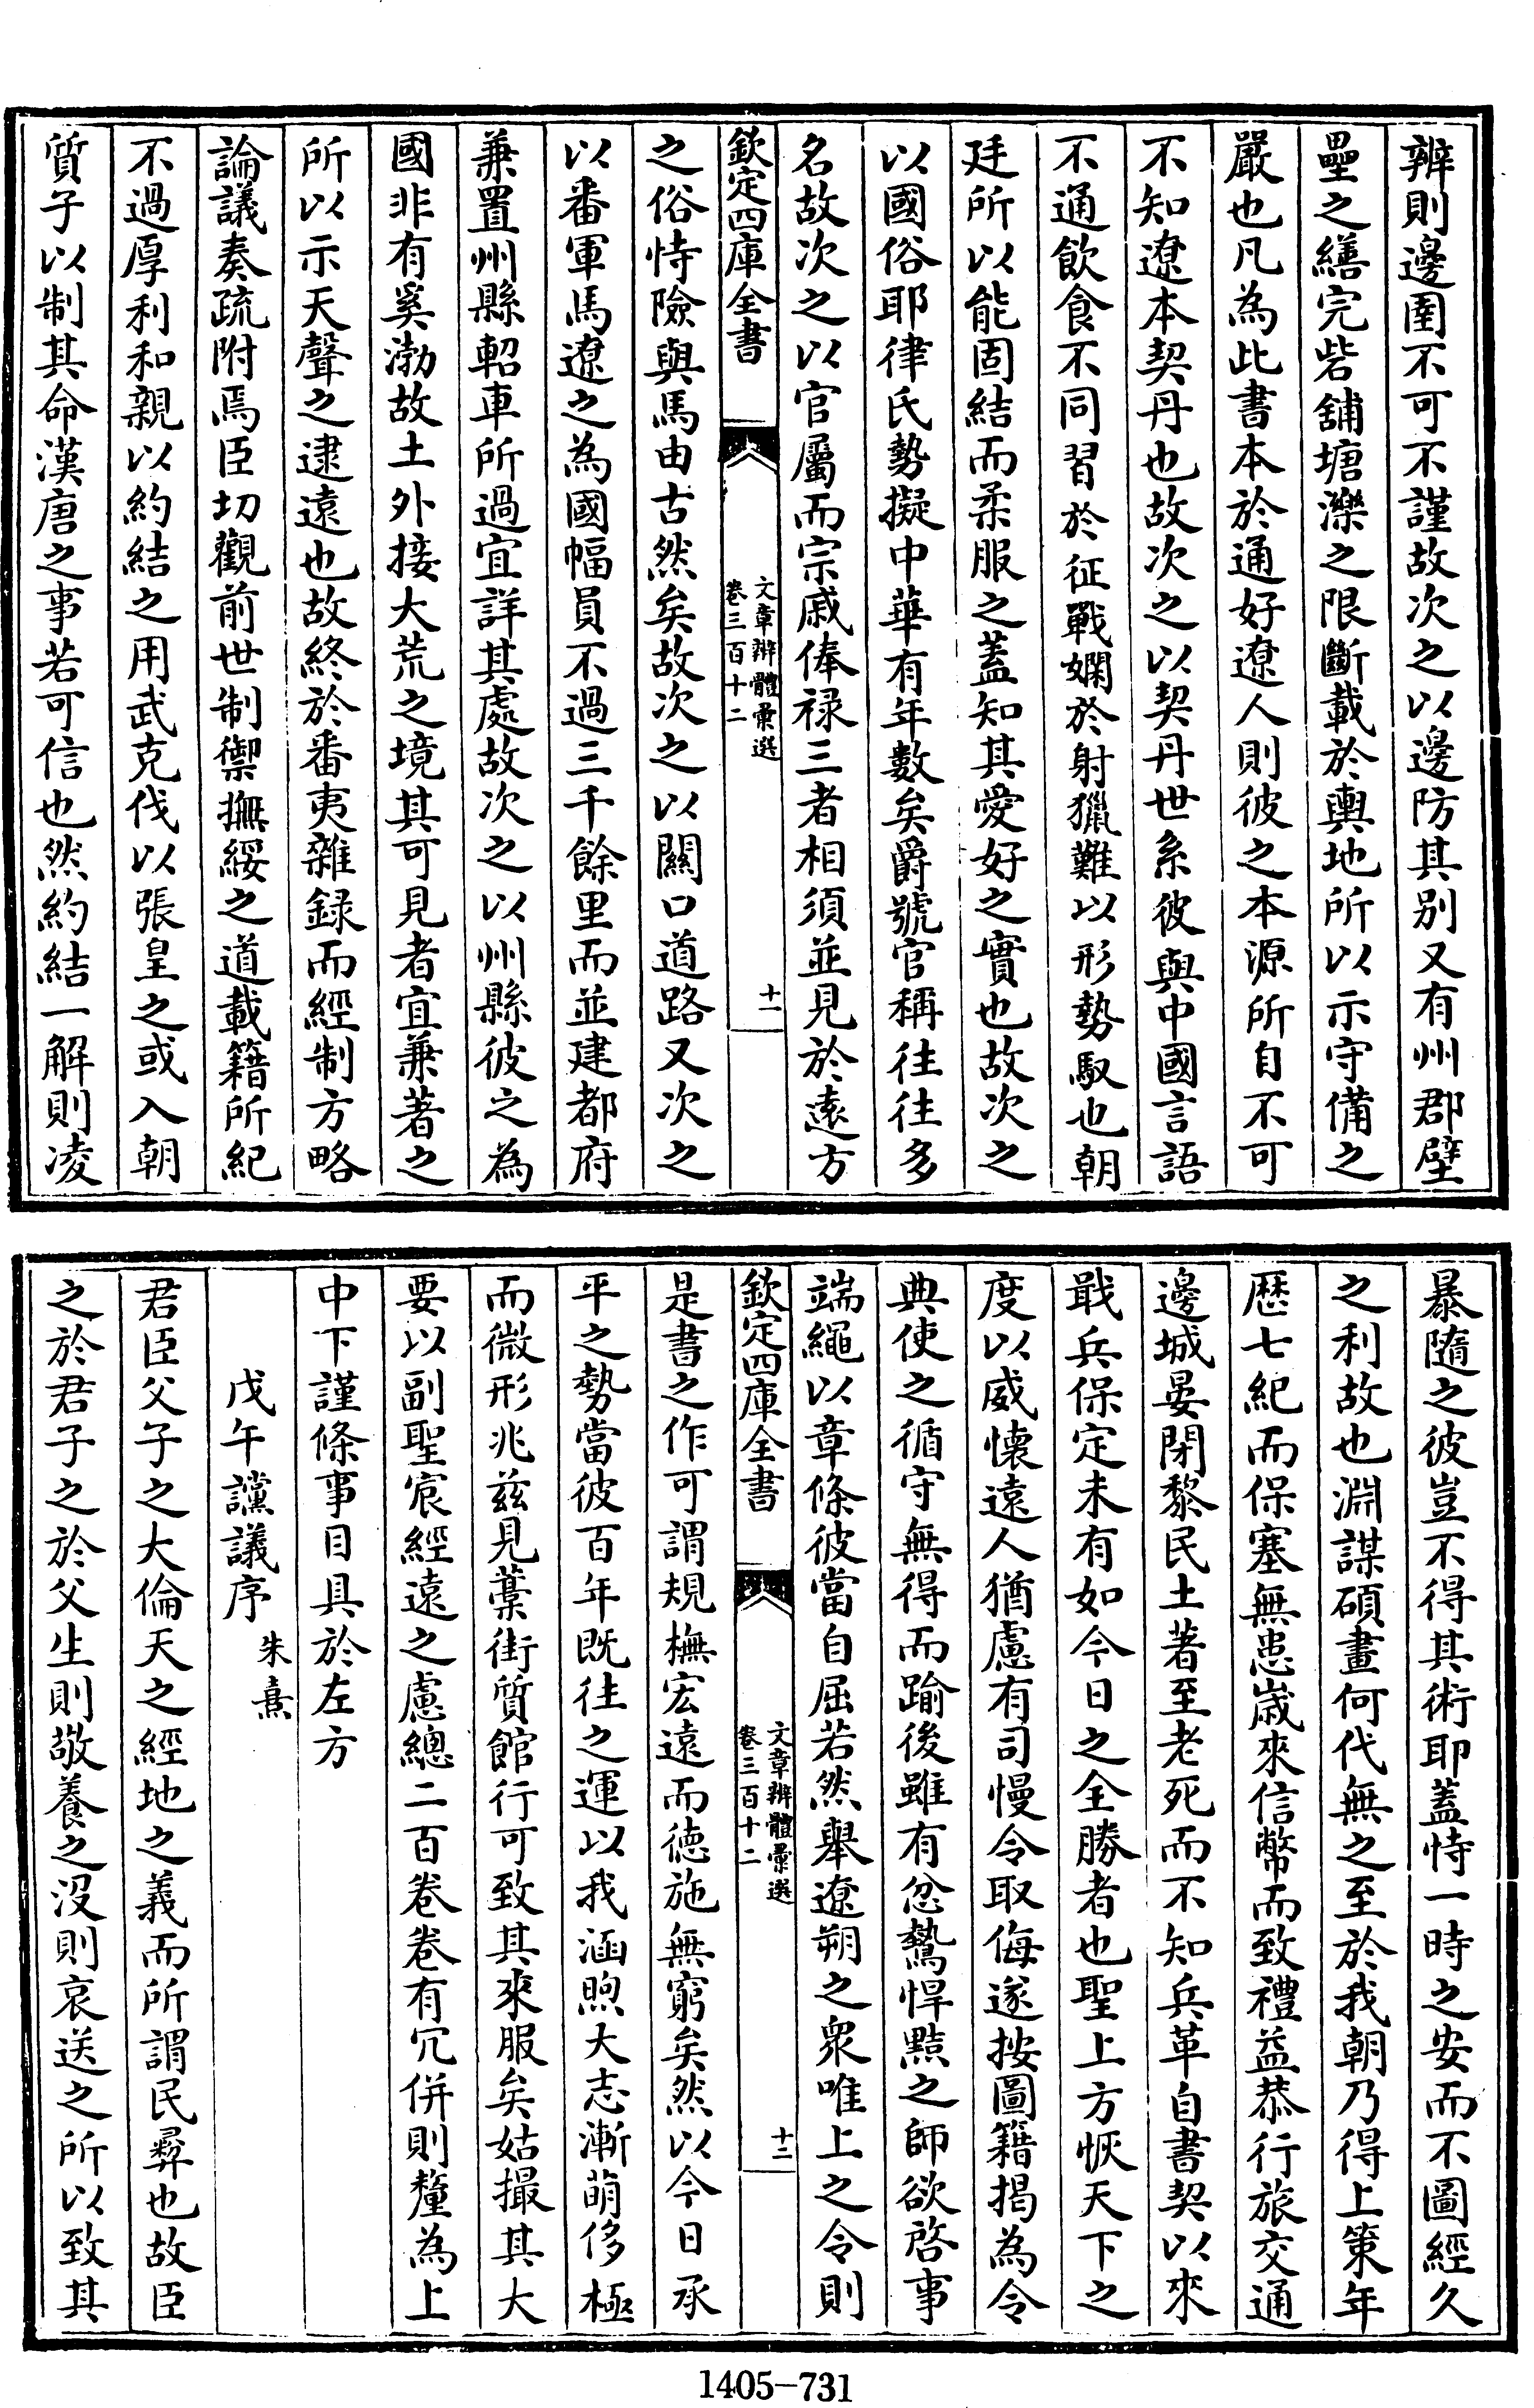 辨則邊圉不可不謹故次之以邊防其别又有州郡壁
壘之繕完砦舖塘濼之限斷載於輿地所以示守備之
嚴也凡為此書本於通好遼人則彼之本源所自不可
不知遼本契丹也故次之以契丹世系彼與中國言語
不通飲食不同習於征戰嫻於射獵難以形勢馭也朝
廷所以能固結而柔服之蓋知其愛好之實也故次之
以國俗耶律氏勢擬中華有年數矣爵號官稱往往多
名故次之以官屬而宗戚俸禄三者相須並見於遠方
欽定四庫全書
文章辨體彙選
卷三百十二
十一
之俗恃險與馬由古然矣故次之以關口道路又次之
以番軍馬遼之為國幅員不過三千餘里而並建都府
兼置州縣軺車所過宜詳其處故次之以州縣彼之為
國非有奚渤故土外接大荒之境其可見者宜兼著之
所以示天聲之逮遠也故終於番夷雜録而經制方略
論議奏疏附焉臣切觀前世制禦撫綏之道載籍所紀
不過厚利和親以約結之用武克伐以張皇之或入朝
質子以制其命漢唐之事若可信也然約結一解則凌
暴隨之彼豈不得其術耶蓋恃一時之安而不圖經久
之利故也淵謀碩畫何代無之至於我朝乃得上策年
歴七紀而保塞無患歳來信幣而致禮益恭行旅交通
邊城晏閉黎民土著至老死而不知兵革自書契以來
戢兵保定未有如今日之全勝者也聖上方恢天下之
度以威懷遠人猶慮有司慢令取侮遂按圖籍揭為令
典使之循守無得而踰後雖有忿鷙悍黠之師欲啓事
端繩以章條彼當自屈若然舉遼朔之衆唯上之令則
欽定四庫全書
文章辨體彙選
卷三百十二
十二
是書之作可謂規橅宏遠而徳施無窮矣然以今日承
平之勢當彼百年既往之運以我涵煦大志漸萌侈極
而微形兆兹見藁街質館行可致其來服矣姑撮其大
要以副聖宸經遠之慮總二百卷卷有冗併則釐為上
中下謹條事目具於左方
戊午讜議序 朱熹
君臣父子之大倫天之經地之義而所謂民彛也故臣
之於君子之於父生則敬養之没則哀送之所以致其
1405-731